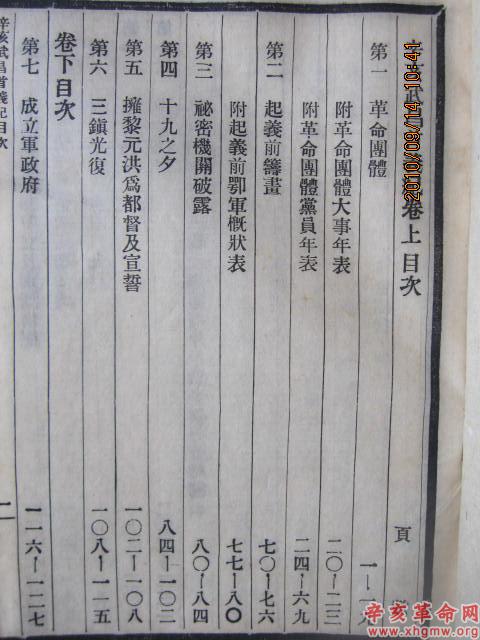 卷上目次 頁
第一 革命團體
附革命團體大事年表 二〇-二三
附革命團體黨員年表 二四-六九
第二 起義前籌畫 七〇-七六
附起義前鄂軍概狀表 七七-八〇
第三 祕密機關破露 八〇-八四
第四 十九之夕 八四-一〇二
第五 擁黎元洪爲都督及宣誓 一〇二-一〇八
第六 三鎮光復 一〇八-一一五
卷下目次
第七 成立軍政府 一一六-一二七
辛亥武昌首義記目次
2010/09/14 10:41
辛亥革命网
www.xhgmw.org